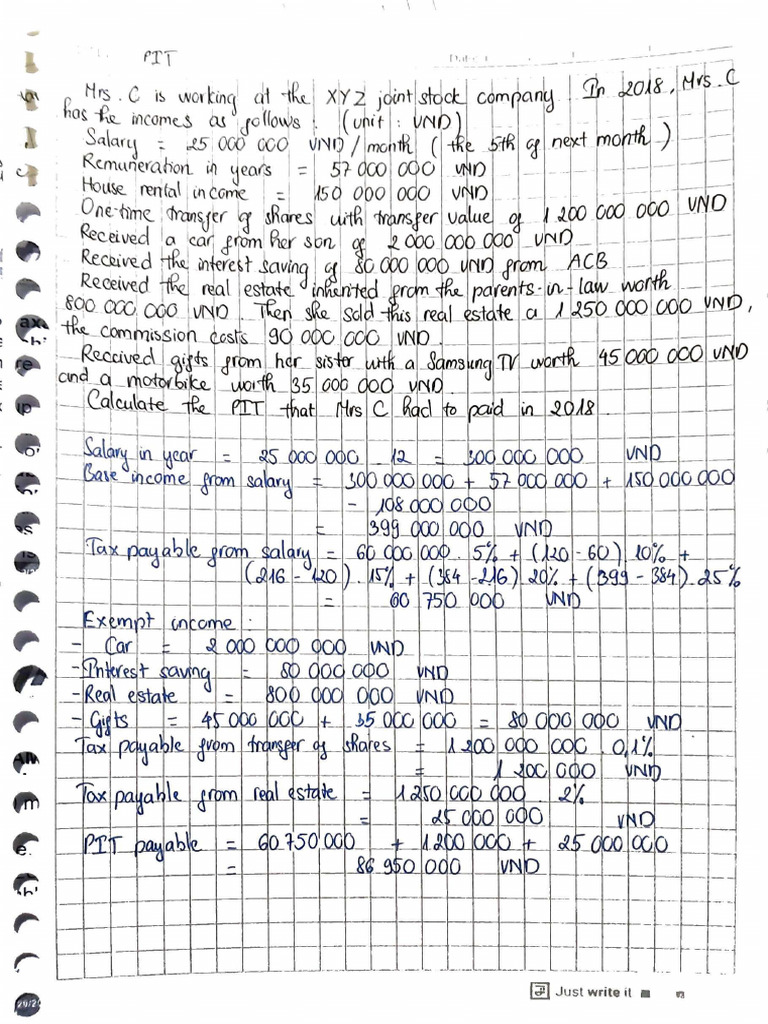 PIT
Date:
Mrs. C is working at the XYZ joint stock company. In 2018, Mrs. C
has the incomes as follows: (unit: VND)
Salary = 25 000 000 VND/month (the 5th of next month)
Remuneration in years = 57 000 000 VND
House rental income = 150 000 000 VND
One-time transfer of shares with transfer value of 1 200 000 000 VND
Received a car from her son of 2 000 000 000 VND
Received the interest saving of 80 000 000 VND from ACB
Received the real estate inherited from the parents-in-law worth
800 000 000 VND. Then she sold this real estate a 1 250 000 000 VND,
the commission costs 90 000 000 VND.
Received gifts from her sister with a Samsung TV worth 45 000 000 VND
and a motorbike worth 35 000 000 VND
Calculate the PIT that Mrs C had to paid in 2018.
Salary in year = 25 000 000 . 12 = 300 000 000 VND
Base income from salary = 300 000 000 + 57 000 000 + 150 000 000
- 108 000 000
= 399 000 000 VND
Tax payable from salary = 60 000 000 . 5% + (120 - 60) . 10% +
(216 - 120) . 15% + (384 - 216) . 20% + (399 - 384) . 25%
= 60 750 000 VND
Exempt income:
- Car = 2 000 000 000 VND
- Interest saving = 80 000 000 VND
- Real estate = 800 000 000 VND
- Gifts = 45 000 000 + 35 000 000 = 80 000 000 VND
Tax payable from transfer of shares = 1 200 000 000 . 0,1%
= 1 200 000 VND
Tax payable from real estate = 1 250 000 000 . 2%
= 25 000 000 VND
PIT payable = 60 750 000 + 1 200 000 + 25 000 000
= 86 950 000 VND
Just write it